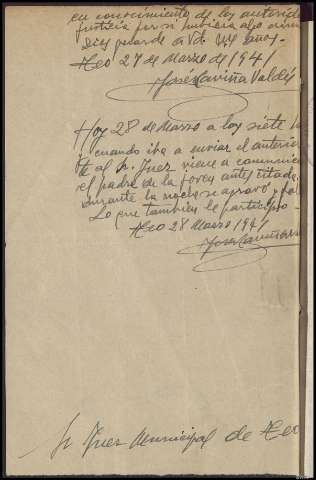 en conocimiento de las autorida
justicia por si hubiera algo
Dios guarde a Vd. años.-
Teo 27 de Marzo de 1941
José Laviña Valdés
Hoy 28 de Marzo a las siete
cuando iba a enviar el anterior
te al Sr. Juez viene a comunicar
el padre de la joven antes citada
durante la noche se agravó y fa
Lo que tambien le participo -
Teo 28 Marzo 1941
José Laviña
Sr Juez Municipal de Teo